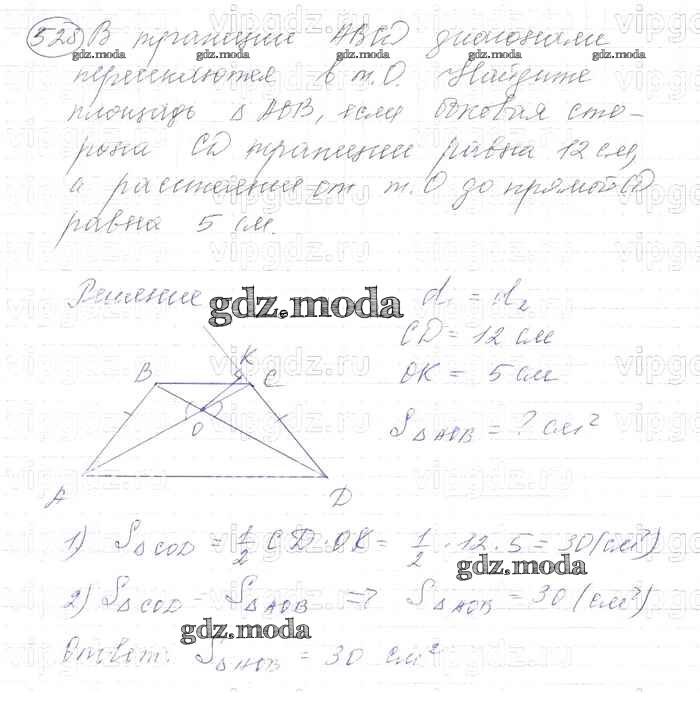 528 В трапеции ABCD диагонали
пересекаются в т.О. Найдите
площадь △ AOB, если боковая сто-
рона CD трапеции равна 12 см,
а расстояние от т.О до прямой CD
равна 5 см.
Решение
gdz.moda
d₁ = d₂
CD = 12 см
OK = 5 см
S△AOB = ? см²
K
B C
O
A D
1) S△COD = 1/2 CD · OK = 1/2 · 12 · 5 = 30 (см²)
gdz.moda
2) S△COD = S△AOB => S△AOB = 30 (см²)
gdz.moda
Ответ: S△AOB = 30 см²